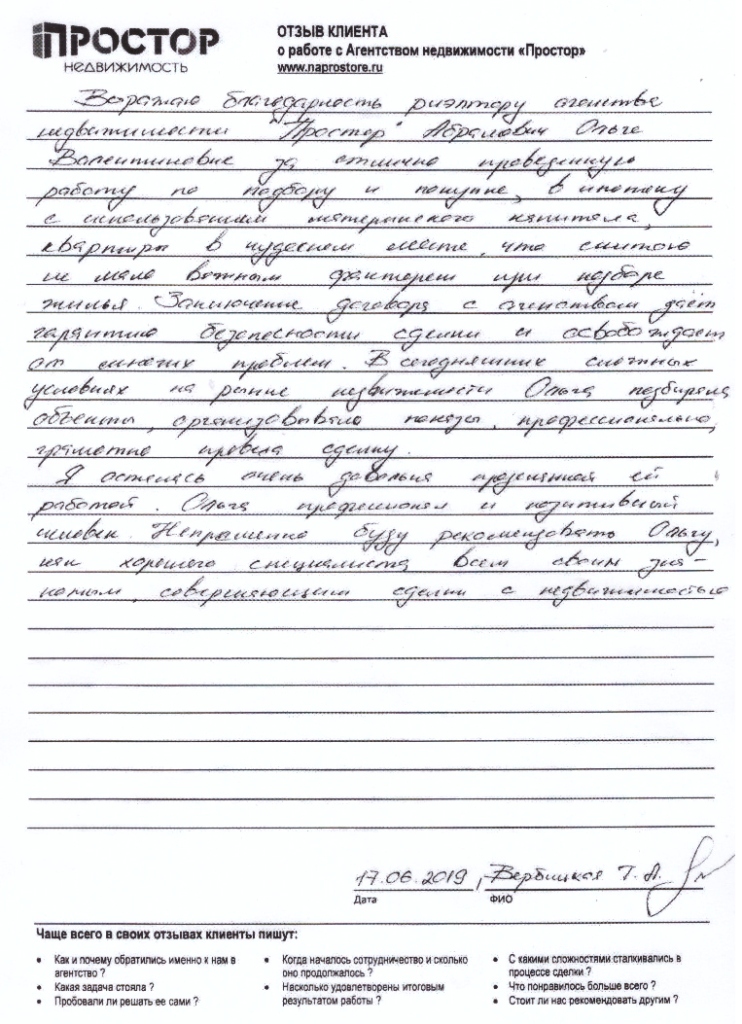 ПРОСТОР
НЕДВИЖИМОСТЬ
ОТЗЫВ КЛИЕНТА
о работе с Агентством недвижимости «Простор»
www.naprostore.ru
Выражаю благодарность риэлтору агенства
недвижимости "Простор" Абрамович Ольге
Валентиновне за отлично проведенную
работу по подбору и покупке, в ипотеку
с использованием материнского капитала,
квартиры в чудесном месте, что считаю
не мало важным фактором при подборе
жилья. Заключение договора с агенством даёт
гарантию безопасности сделки и освобождает
от многих проблем. В сегодняшних сложных
условиях на рынке недвижимости Ольга подбирала
объекты, организовывала показы, профессионально,
грамотно провела сделку.
Я осталась очень довольна проделанной ей
работой. Ольга профессионал и позитивный
человек. Непременно буду рекомендовать Ольгу,
как хорошего специалиста всем своим зна-
комым, совершающим сделки с недвижимостью
17.06.2019, Вербицкая Т. А.
Дата ФИО
Чаще всего в своих отзывах клиенты пишут:
• Как и почему обратились именно к нам в
агентство ?
• Какая задача стояла ?
• Пробовали ли решать ее сами ?
• Когда началось сотрудничество и сколько
оно продолжалось ?
• Насколько удовлетворены итоговым
результатом работы ?
• С какими сложностями сталкивались в
процессе сделки ?
• Что понравилось больше всего ?
• Стоит ли нас рекомендовать другим ?